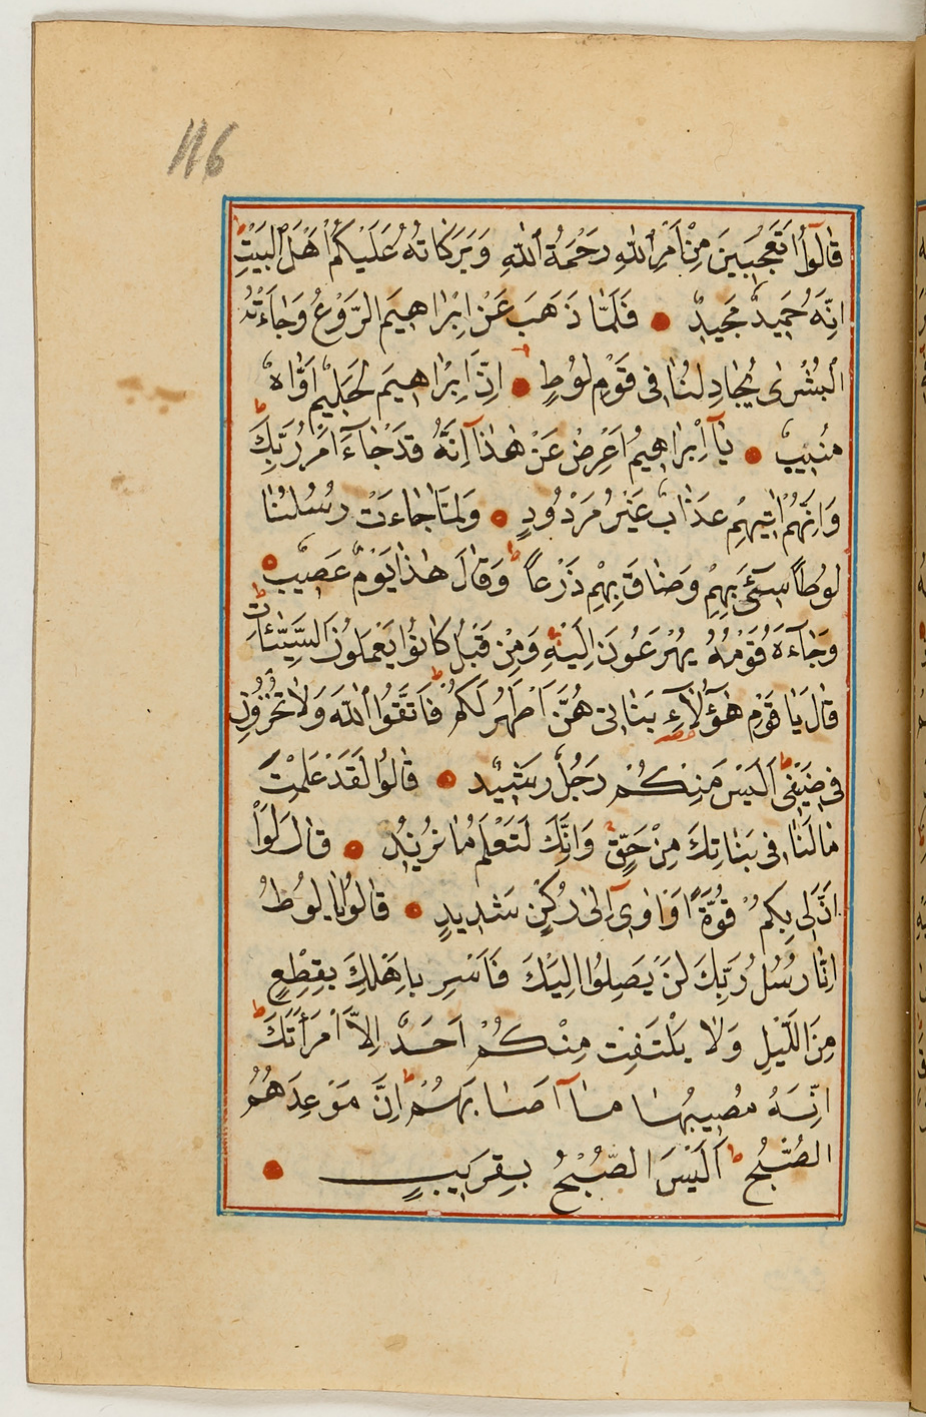 116
قَالُوا اَتَعْجَبِينَ مِنْ اَمْرِ اللّٰهِ رَحْمَةُ اللّٰهِ وَبَرَكَاتُهُ عَلَيْكُمْ اَهْلَ الْبَيْتِ ط
اِنَّهُ حَمِيدٌ مَجِيدٌ ۝ فَلَمَّا ذَهَبَ عَنْ اِبْرٰاهِيمَ الرَّوْعُ وَجَاءَتْهُ
الْبُشْرٰى يُجَادِلُنَا فِى قَوْمِ لُوطٍ ط ۝ اِنَّ اِبْرٰاهِيمَ لَحَلِيمٌ اَوَّاهٌ
مُنِيبٌ ۝ يَآ اِبْرٰاهِيمُ اَعْرِضْ عَنْ هٰذَآ اِنَّهُ قَدْ جَآءَ اَمْرُ رَبِّكَ ط
وَاِنَّهُمْ اٰتِيهِمْ عَذَابٌ غَيْرُ مَرْدُودٍ ۝ وَلَمَّا جَاءَتْ رُسُلُنَا
لُوطاً سِىٓءَ بِهِمْ وَضَاقَ بِهِمْ ذَرْعاً ط وَقَالَ هٰذَا يَوْمٌ عَصِيبٌ ۝
وَجَآءَهُ قَوْمُهُ يُهْرَعُونَ اِلَيْهِ ط وَمِنْ قَبْلُ كَانُوا يَعْمَلُونَ السَّيِّئَاتِ ط
قَالَ يَا قَوْمِ هٰٓؤُلَآءِ بَنَاتِى هُنَّ اَطْهَرُ لَكُمْ ط فَاتَّقُوا اللّٰهَ وَلَا تُخْزُونِ
فِى ضَيْفِى ط اَلَيْسَ مِنْكُمْ رَجُلٌ رَشِيدٌ ۝ قَالُوا لَقَدْ عَلِمْتَ
مَا لَنَا فِى بَنَاتِكَ مِنْ حَقٍّ ج وَاِنَّكَ لَتَعْلَمُ مَا نُرِيدُ ۝ قَالَ لَوْ
اَنَّ لِى بِكُمْ قُوَّةً اَوْ اٰوِىٓ اِلٰى رُكْنٍ شَدِيدٍ ۝ قَالُوا يَا لُوطُ
اِنَّا رُسُلُ رَبِّكَ لَنْ يَصِلُوا اِلَيْكَ فَاَسْرِ بِاَهْلِكَ بِقِطْعٍ
مِنَ اللَّيْلِ وَلَا يَلْتَفِتْ مِنْكُمْ اَحَدٌ اِلَّا امْرَأَتَكَ ط
اِنَّهُ مُصِيبُهَا مَآ اَصَابَهُمْ ط اِنَّ مَوْعِدَهُمُ
الصُّبْحُ ط اَلَيْسَ الصُّبْحُ بِقَرِيبٍ ۝